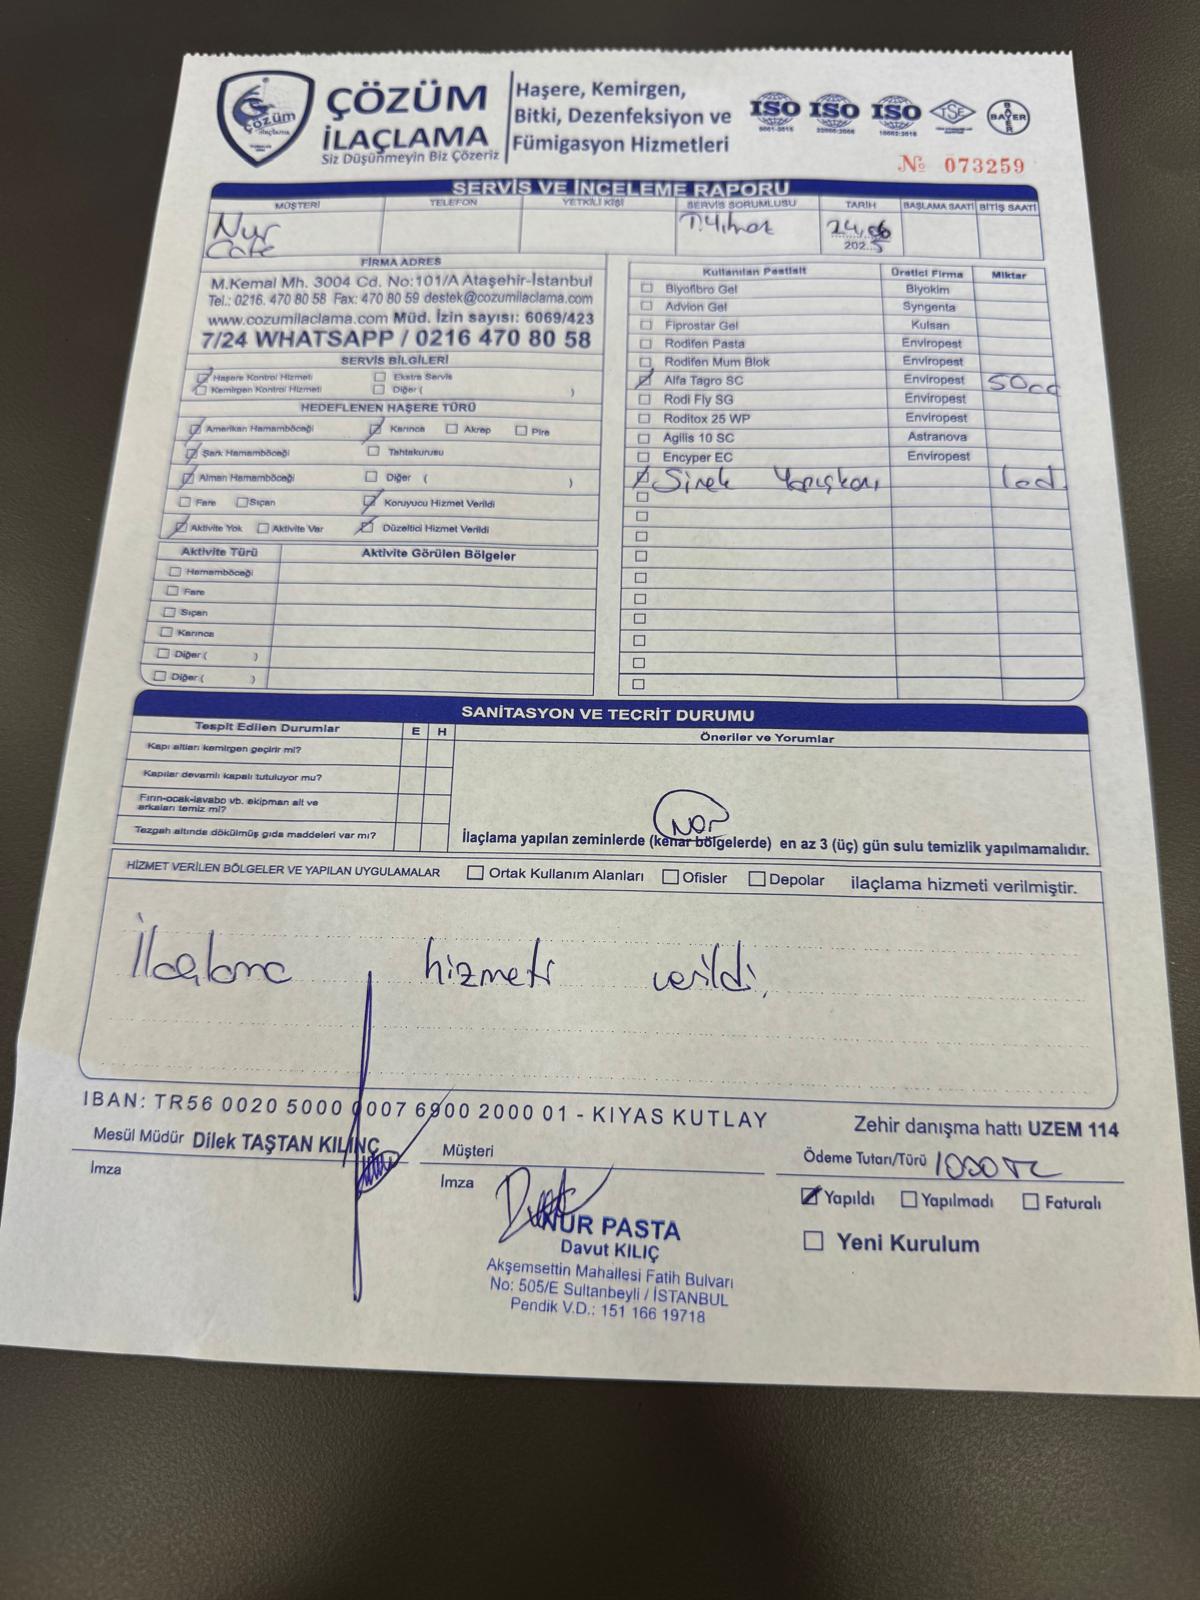 ÇÖZÜM
İLAÇLAMA
Siz Düşünmeyin Biz Çözeriz
Haşere, Kemirgen,
Bitki, Dezenfeksiyon ve
Fümigasyon Hizmetleri
ISO ISO ISO TSE BAYER
№ 073259
SERVİS VE İNCELEME RAPORU
MÜŞTERİ TELEFON YETKİLİ KİŞİ SERVİS SORUMLUSU TARİH BAŞLAMA SAATİ BİTİŞ SAATİ
Nur
Cafe
T.Yılmaz
24.06
2025
FİRMA ADRES
M.Kemal Mh. 3004 Cd. No:101/A Ataşehir-İstanbul
Tel.: 0216. 470 80 58 Fax: 470 80 59 destek@cozumilaclama.com
www.cozumilaclama.com Müd. İzin sayısı: 6069/423
7/24 WHATSAPP / 0216 470 80 58
SERVİS BİLGİLERİ
Haşere Kontrol Hizmeti Ekstra Servis
Kemirgen Kontrol Hizmeti Diğer ( )
HEDEFLENEN HAŞERE TÜRÜ
Amerikan Hamamböceği Karınca Akrep Pire
Şark Hamamböceği Tahtakurusu
Alman Hamamböceği Diğer ( )
Fare Sıçan Koruyucu Hizmet Verildi
Aktivite Yok Aktivite Var Düzeltici Hizmet Verildi
Aktivite Türü Aktivite Görülen Bölgeler
Hamamböceği
Fare
Sıçan
Karınca
Diğer ( )
Diğer ( )
Kullanılan Pestisit Üretici Firma Miktar
Biyofibro Gel Biyokim
Advion Gel Syngenta
Fiprostar Gel Kulsan
Rodifen Pasta Enviropest
Rodifen Mum Blok Enviropest
Alfa Tagro SC Enviropest 50cc
Rodi Fly SG Enviropest
Roditox 25 WP Enviropest
Agilis 10 SC Astranova
Encyper EC Enviropest
Sinek Yapışkanı 1ad.
SANİTASYON VE TECRİT DURUMU
Tespit Edilen Durumlar E H Öneriler ve Yorumlar
Kapı altları kemirgen geçirir mi?
Kapılar devamlı kapalı tutuluyor mu?
Fırın-ocak-lavabo vb. ekipman alt ve
arkaları temiz mi?
Tezgah altında dökülmüş gıda maddeleri var mı?
İlaçlama yapılan zeminlerde (kenar bölgelerde) en az 3 (üç) gün sulu temizlik yapılmamalıdır.
HİZMET VERİLEN BÖLGELER VE YAPILAN UYGULAMALAR Ortak Kullanım Alanları Ofisler Depolar ilaçlama hizmeti verilmiştir.
İlaçlama hizmeti verildi.
IBAN: TR56 0020 5000 0007 6900 2000 01 - KIYAS KUTLAY
Zehir danışma hattı UZEM 114
Mesül Müdür Dilek TAŞTAN KILINÇ
İmza
Müşteri
İmza
Ödeme Tutarı/Türü 1000 TL
Yapıldı Yapılmadı Faturalı
Yeni Kurulum
NUR PASTA
Davut KILIÇ
Akşemsettin Mahallesi Fatih Bulvarı
No: 505/E Sultanbeyli / İSTANBUL
Pendik V.D.: 151 166 19718